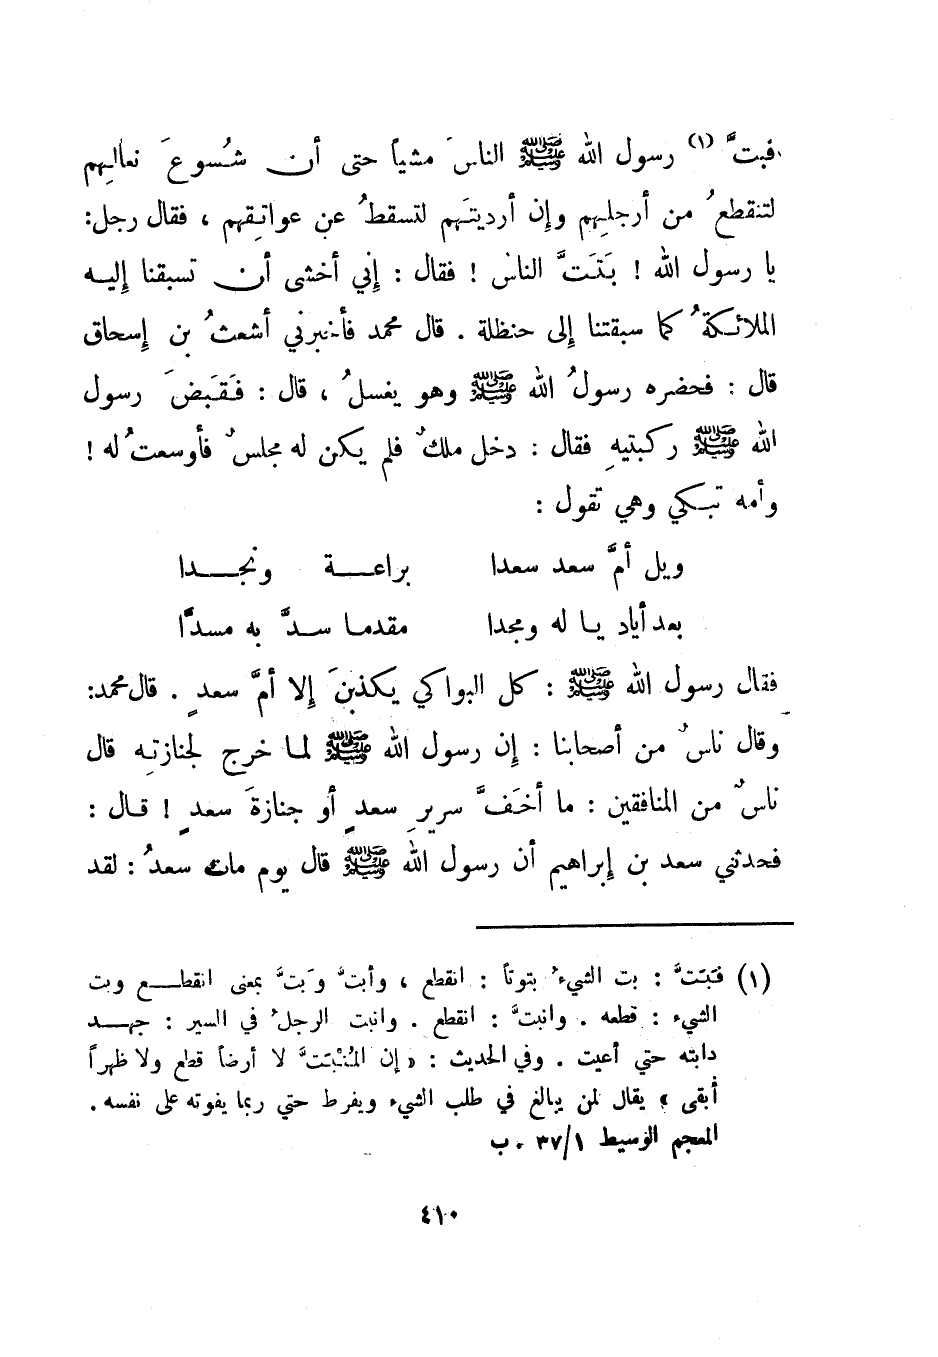 فبتَّ (١) رسول الله ﷺ الناسَ مشياً حتى أن شُسوعَ نعالِهم
لتنقطعُ من أرجلِهم وإن أرديتَهم لتسقطُ عن عواتقِهم ، فقال رجل:
يا رسول الله ! بَتَتَّ الناسَ ! فقال : إني أخشى أن تسبقنا إليه
الملائكةُ كما سبقتنا إلى حنظلة . قال محمد فأخبرني أشعثُ بن إسحاق
قال : فحضره رسولُ الله ﷺ وهو يغسلُ ، قال : فَقَبَضَ رسول
الله ﷺ ركبتيهِ فقال : دخل ملكٌ فلم يكن له مجلسٌ فأوسعتُ له !
وأمه تبكي وهي تقول :
ويل أمَّ سعد سعدا براعة ونجدا
بعد أياد يا له ومجدا مقدما سدَّ به مسدَّا
فقال رسول الله ﷺ : كل البواكي يكذبنَ إلا أمَّ سعدٍ . قال محمد:
وقال ناسٌ من أصحابنا : إن رسول الله ﷺ لما خرج لجنازتِه قال
ناسٌ من المنافقين : ما أخَفَّ سريرِ سعدٍ أو جنازةَ سعدٍ ! قال :
فحدثني سعد بن إبراهيم أن رسول الله ﷺ قال يوم مات سعدُ : لقد
(١) فَبَتَّ : بت الشيءُ بتوتاً : انقطع ، وأبتَّ وبَتَّ بمعنى انقطع وبت
الشيء : قطعه . وانبتَّ : انقطع . وانبت الرجلُ في السير : جهد
دابته حتي أعيت . وفي الحديث : « إن المُنْبَتَّ لا أرضاً قطع ولا ظهراً
أبقى » يقال لمن يبالغ في طلب الشيء ويفرط حتي ربما يفوته على نفسه .
المعجم الوسيط ٣٧/١ . ب
٤١٠